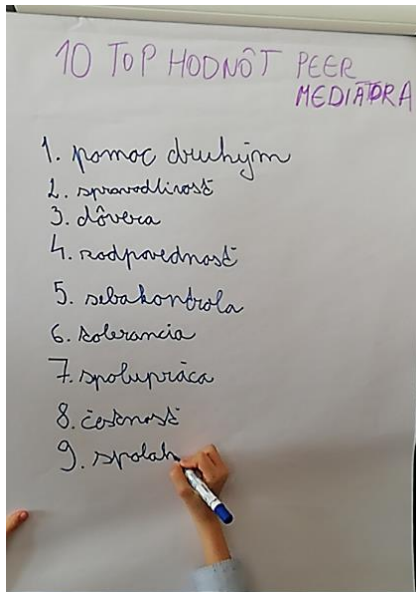 10 TOP HODNÔT PEER
MEDIÁTORA
1. pomoc druhým
2. spravodlivosť
3. dôvera
4. zodpovednosť
5. sebakontrola
6. tolerancia
7. spolupráca
8. čestnosť
9. spolah